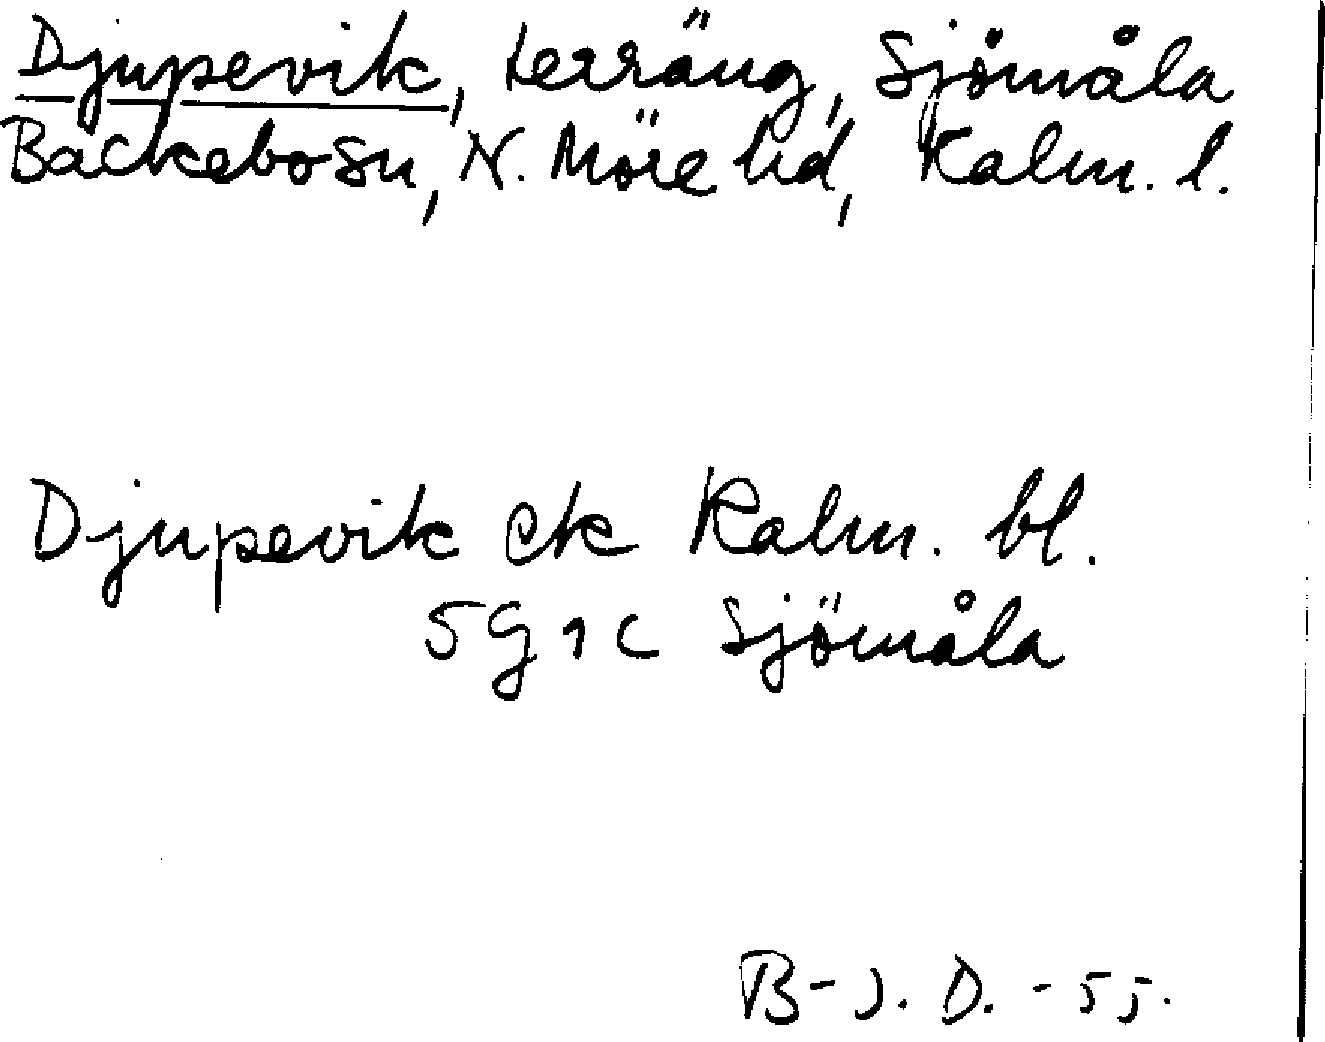 Djupevik, terräng, Sjömåla
Backebo sn, N. Möre hd, Kalm. l.
Djupevik ek Kalm. bl.
5G1c Sjömåla
B-J. D. -55.